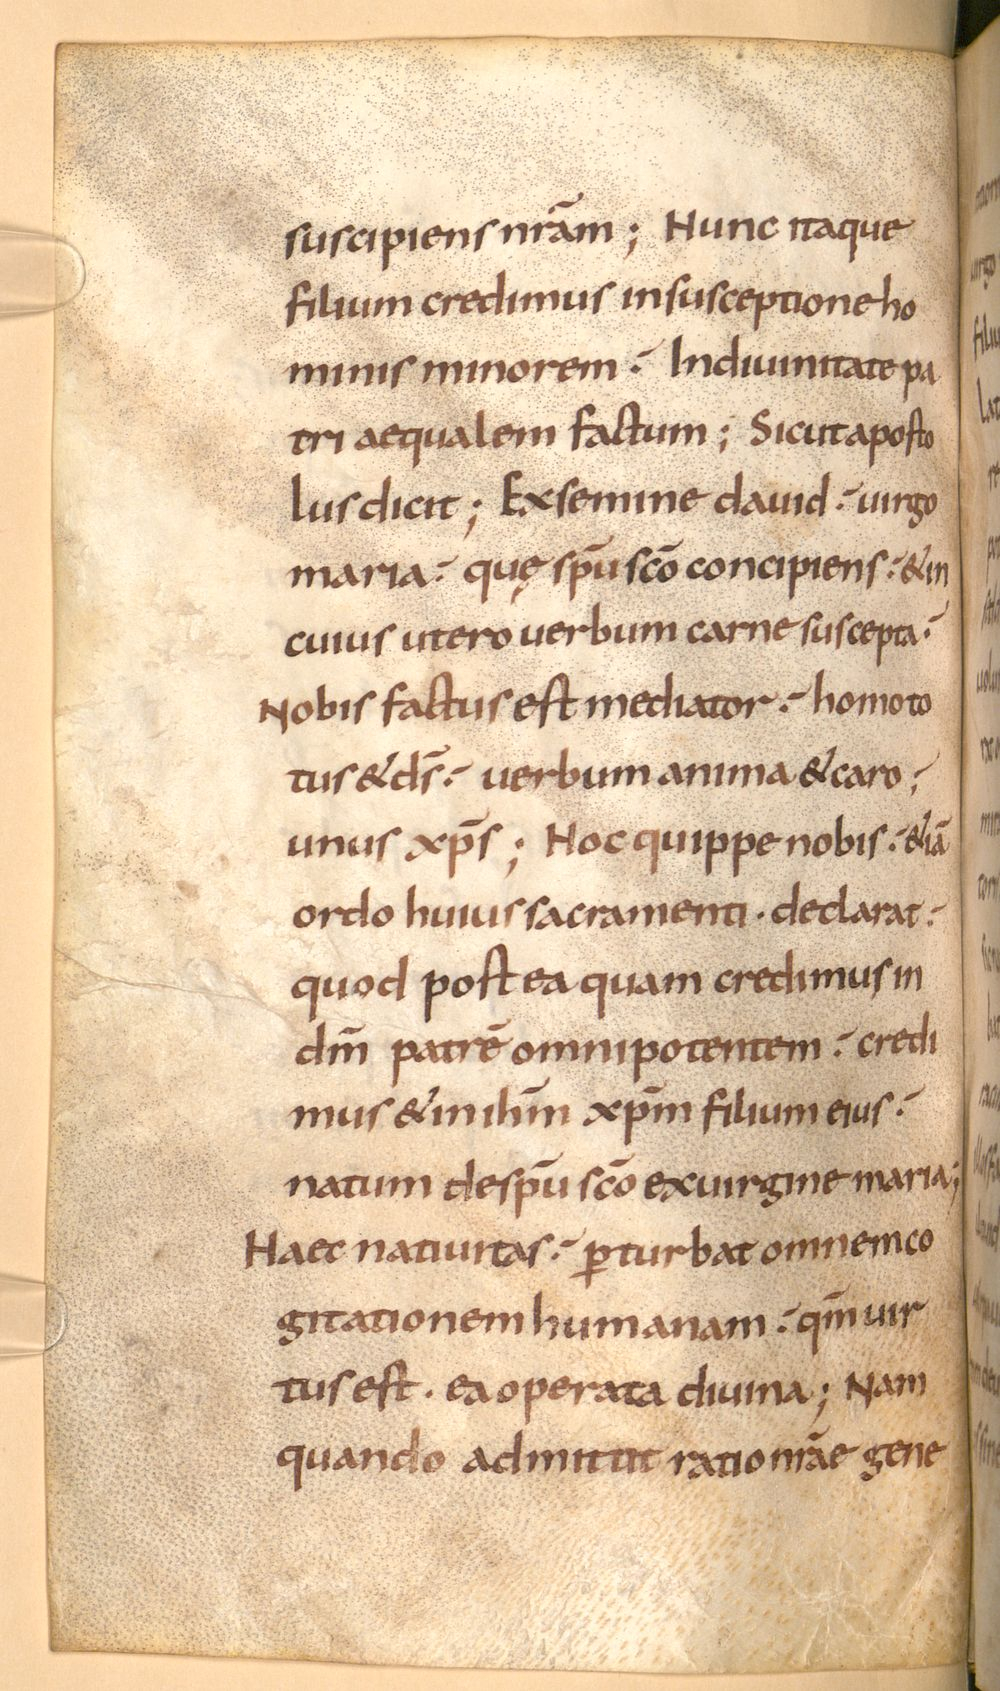 suscipiens nr̄am ; Nunc itaque
filium credimus in susceptione ho
minis minorem : In diuinitate pa
tri aequalem factum ; Sicut aposto
lus dicit ; Ex semine dauid : uirgo
maria : quę sp̄u sc̄o concipiens : & in
cuius utero uerbum carne suscepta :
Nobis factus est mediator : homo to
tus & d̄s : uerbum anima & caro ;
unus xp̄s ; Hoc quippe nobis : &iā
ordo huius sacramenti · declarat :
quod postea quam credimus in
dm̄ patrē omnipotentem : credi
mus & in ihm̄ xp̄m filium eius :
natum de sp̄u sc̄o ex uirgine maria ;
Haec natiuitas : ꝑturbat omnem co
gitationem humanam : qm̄ uir
tus est · ea operata diuina ; Nam
quando admittit ratio nr̄ae gene